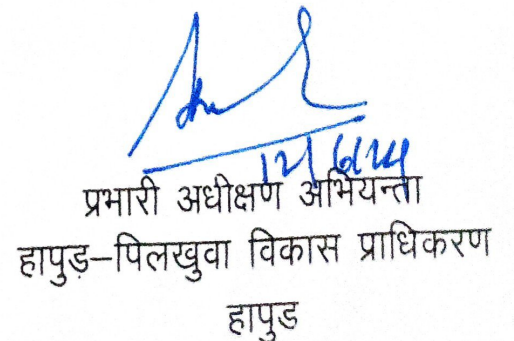 12/6/24
प्रभारी अधीक्षण अभियन्ता
हापुड़–पिलखुवा विकास प्राधिकरण
हापुड